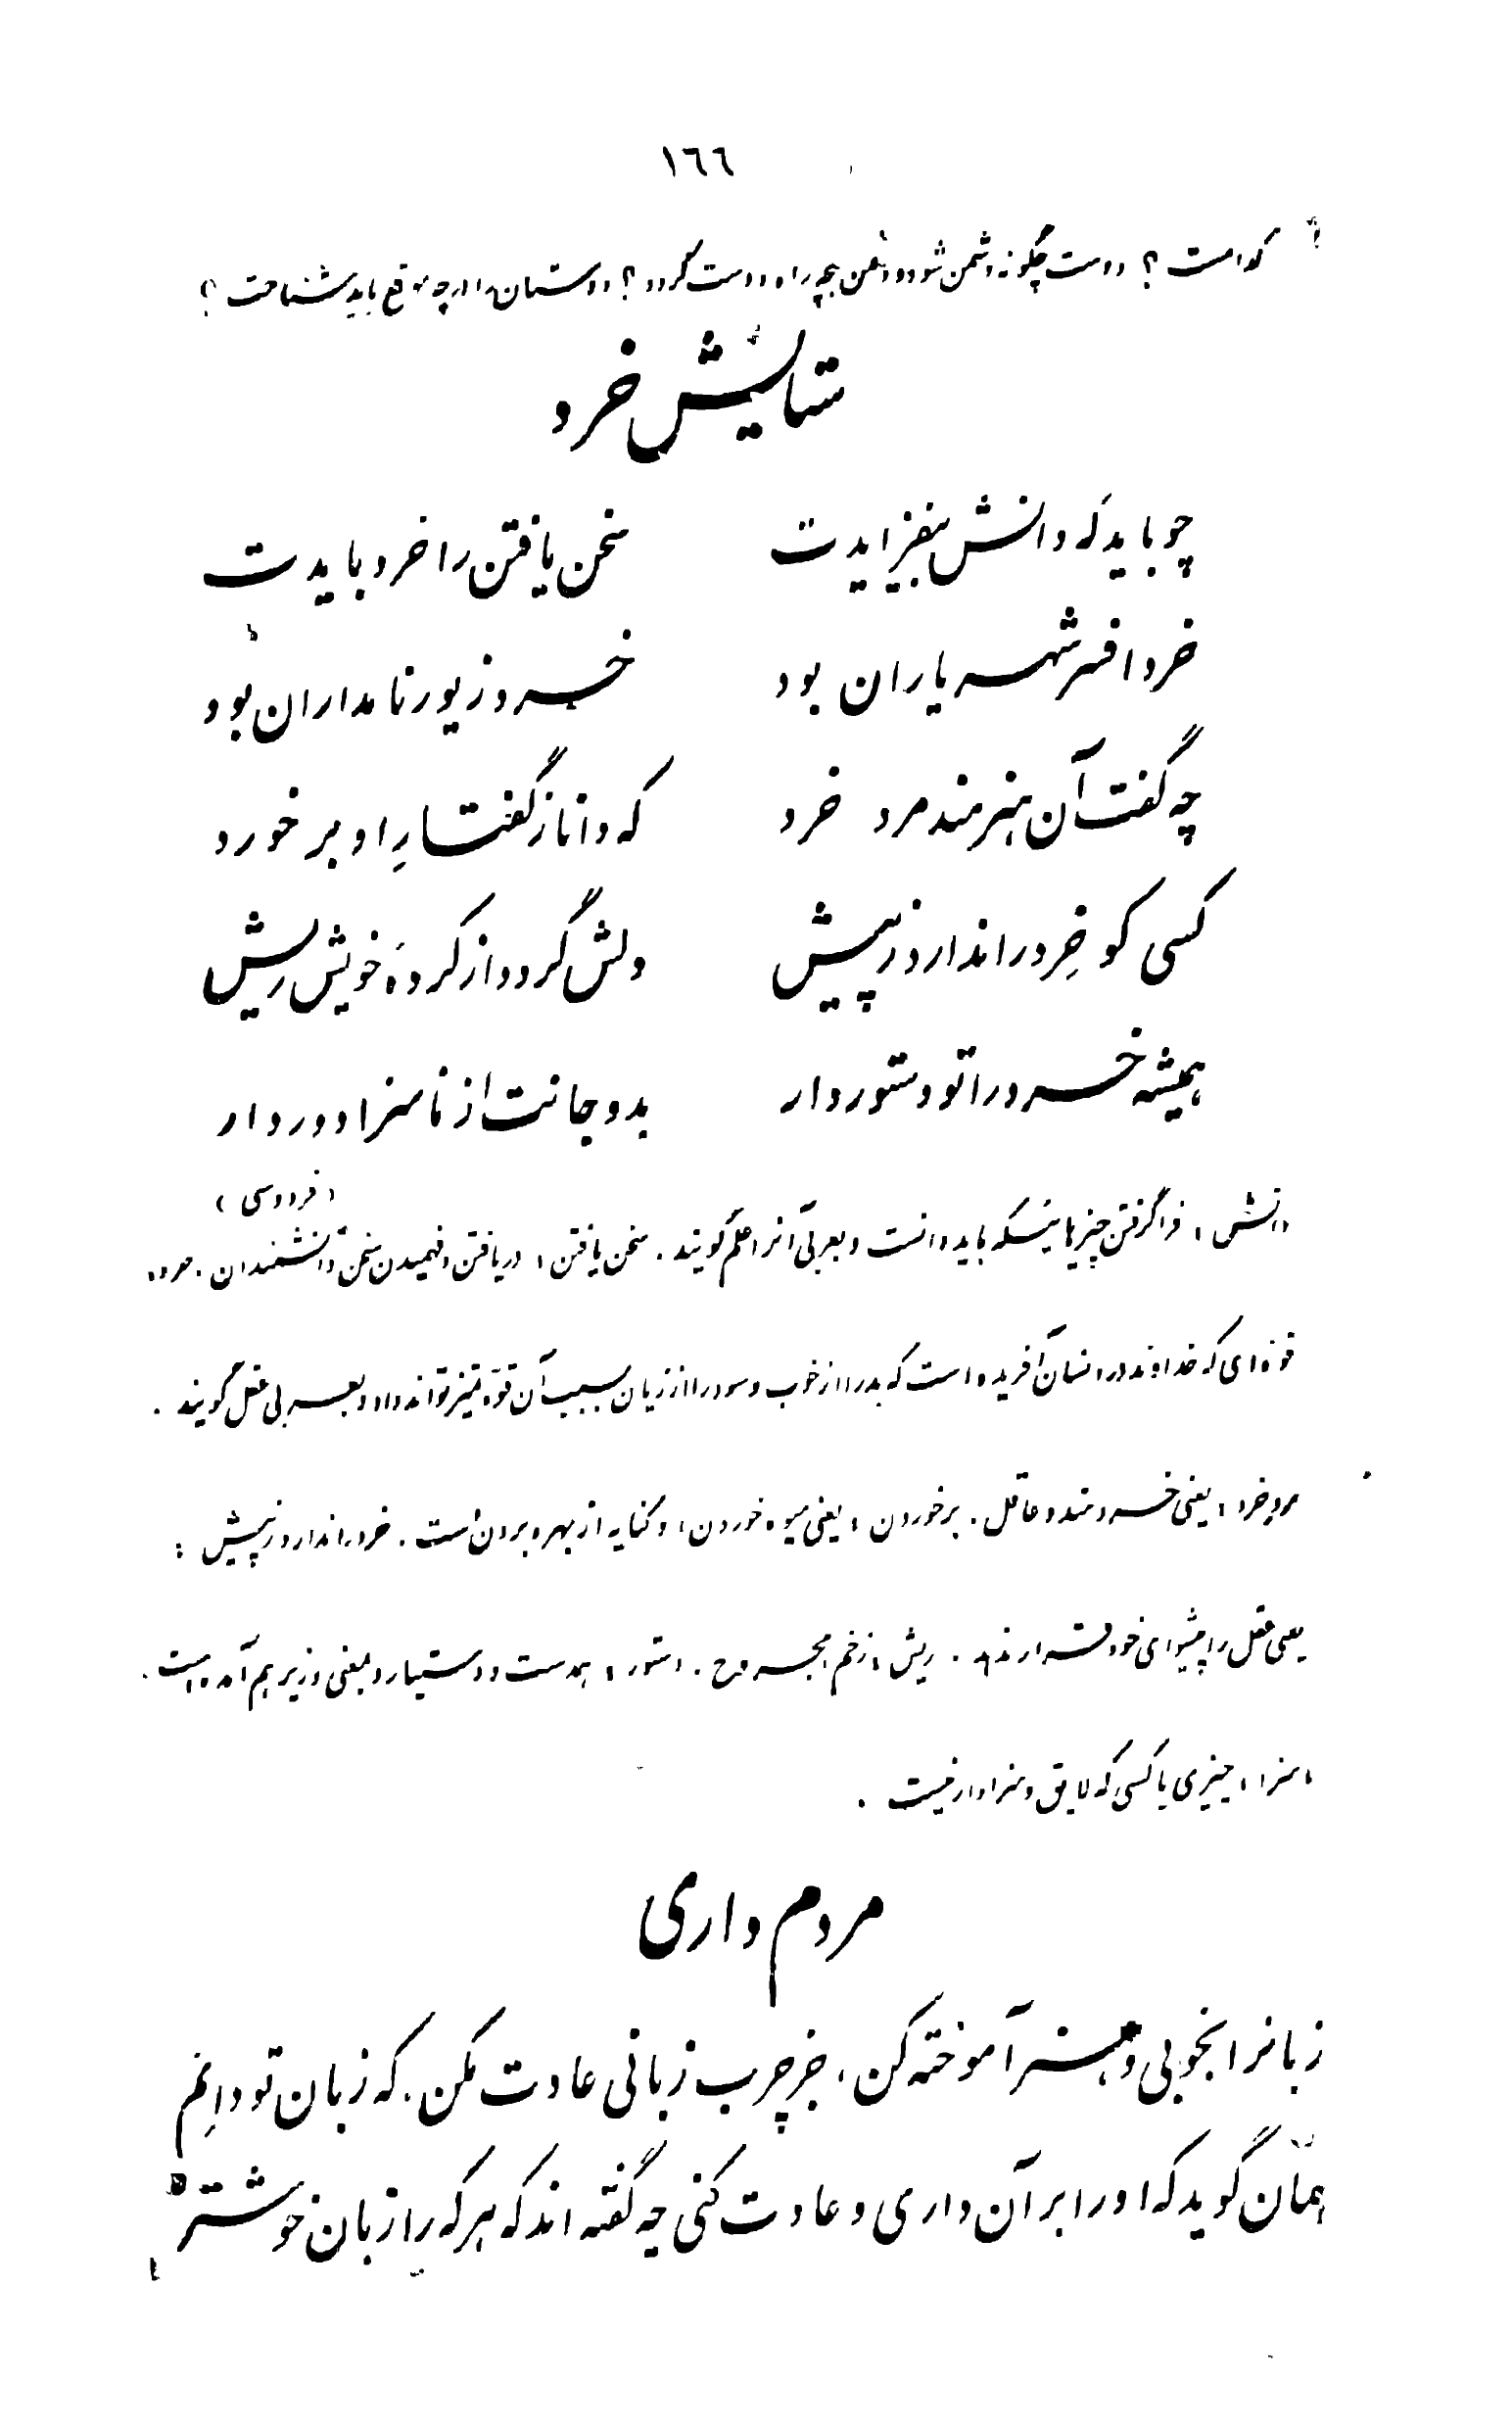 ١٦٦
کدامست ؟ دوست چگونه دشمن شود و دشمن بچه راه دوست گردد ؟ دوستان را در چه موقع باید شناخت ؟
ستایش خرد
چو باید که دانش بیفزایدت سخن یافتن را خرد بایدت
خرد افسر شهریاران بود خرد زیور نامداران بود
چه گفت آن هنرمند مرد خرد که دانا ز گفتارِ او بر خورد
کسی کو خِرد را ندارد ز پیش دلش گردد از کردهٔ خویش ریش
همیشه خرد را تو دستور دار بدو جانت از ناسزا دور دار
(فردوسی)
دانش : فراگرفتن چیزهائیکه باید دانست و بعربی آنرا علم گویند . سخن یافتن : دریافتن و فهمیدن سخن دانشمندان . خرد :
قوه‌ای که خداوند در انسان آفریده است که بد را از خوب و سود را از زیان بسبب آن قوّه تمیز تواند داد و بعربی عقل گویند .
مردِ خرد : یعنی خردمند و عاقل . برخوردن : یعنی میوه خوردن ، و کنایه از بهره بردن است . خرد را ندارد ز پیش :
یعنی عقل را پیشوای خود قرار ندهد . ریش : زخم ، مجروح . دستور : همدست و دستیار و بمعنی وزیر هم آمده است .
ناسزا : چیزی یا کسی که لایق و سزاوار نیست .
مردم داری
زبانرا بخوبی و هنر آموخته کن ، جز چرب زبانی عادت مکن . که زبان تو دایم
همان گوید که او را بر آن داری و عادت کنی چه گفته اند که هر که را زبان خوشتر